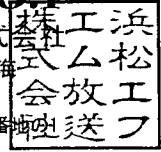 浜松エフ
エム放送
株式会社
海